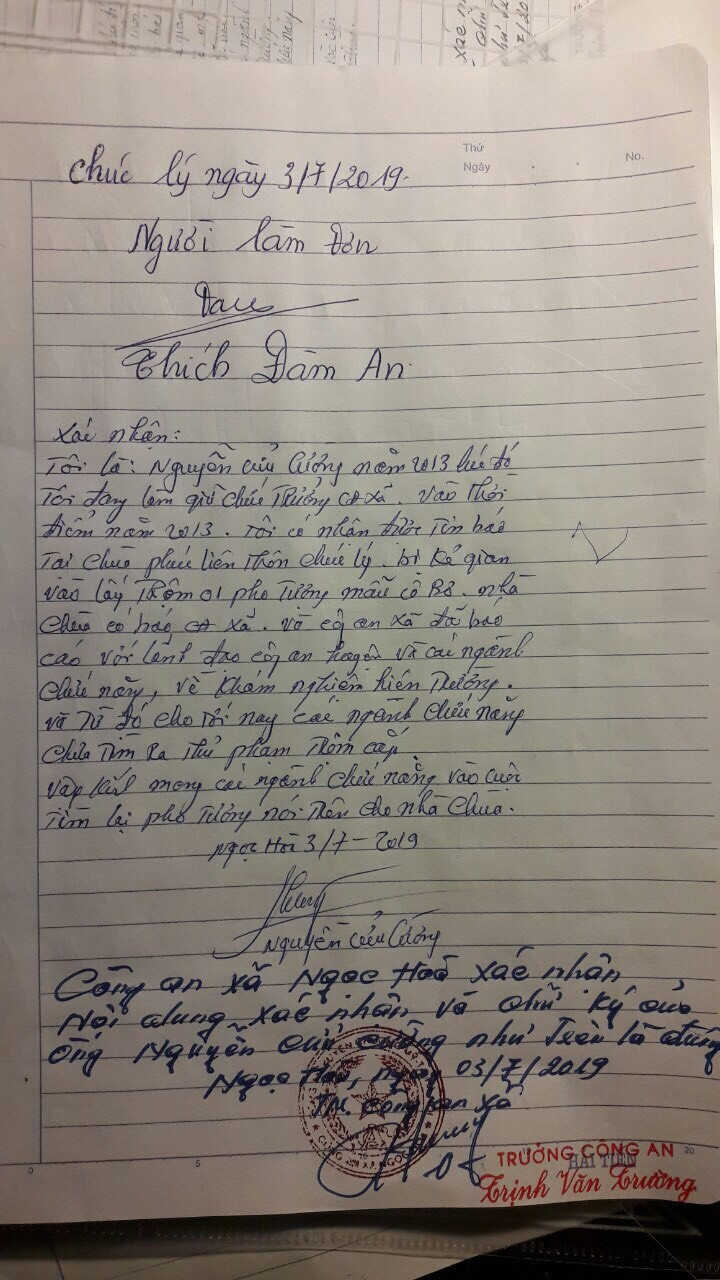 Thứ
Ngày . . No.
Chúc lý ngày 3/7/2019.
Người làm đơn
Thích Đàm An
Xác nhận:
Tôi là: Nguyễn cửu Cường năm 2013 lúc đó
Tôi đang làm giữ chức Trưởng CA xã. vào thời
điểm năm 2013. Tôi có nhận được Tin báo
Tại chùa phúc liên Thôn chúc lý. bị kẻ gian
vào lấy Trộm 01 pho Tượng mẫu cô Bơ. nhà
chùa có báo CA xã. và cg an xã đã báo
cáo với lãnh đạo cg an huyện và các ngành
chức năng, về khám nghiệm hiện Trường.
và Từ đó cho tới nay các ngành chức năng
chưa Tìm Ra Thủ phạm Trộm cắp
vậy kính mong các ngành chức năng vào cuộc
Tìm lại pho Tượng nói Trên cho nhà chùa.
Ngọc Hoà 3/7-2019
Nguyễn cửu Cường
Công an xã Ngọc Hoà xác nhận
Nội dung xác nhận và chữ ký của
ông Nguyễn cửu cường như Trên là đúng
Ngọc Hoà, ngày 03/7/2019
TM. Công an xã
TRƯỞNG CÔNG AN
HẢI TIẾN
Trịnh Văn Trường
0 5 20